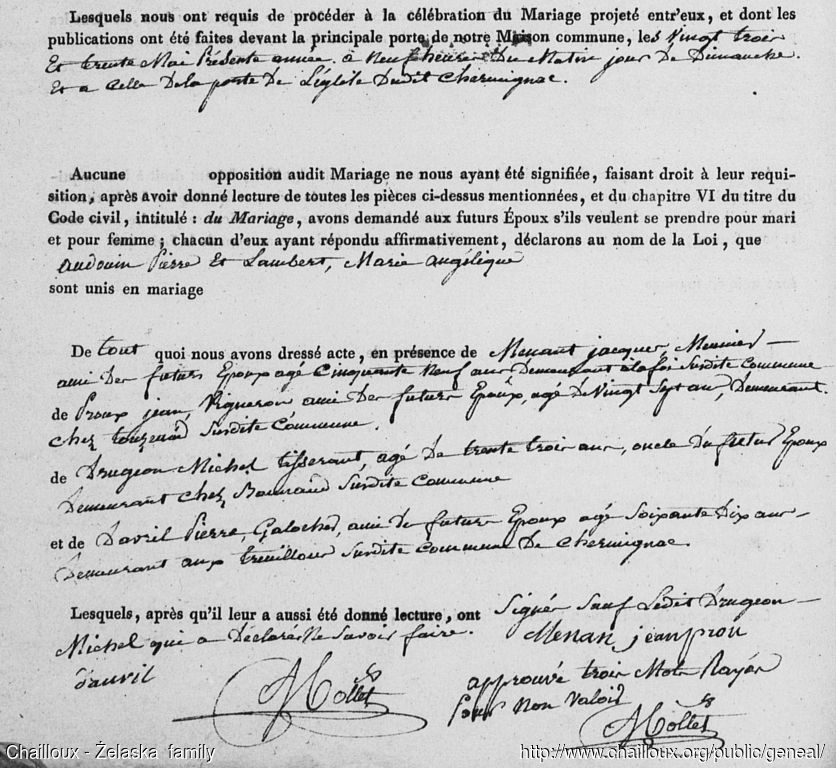 Lesquels nous ont requis de procéder à la célébration du Mariage projeté entr'eux, et dont les
publications ont été faites devant la principale porte de notre Maison commune, les vingt trois
Et trente Mai Présente année à Neuf heures Du Matin jour de Dimanche.
Et a Celle De la porte De L'église Dudit Chermignac.
Aucune opposition audit Mariage ne nous ayant été signifiée, faisant droit à leur requi-
sition, après avoir donné lecture de toutes les pièces ci-dessus mentionnées, et du chapitre VI du titre du
Code civil, intitulé : du Mariage, avons demandé aux futurs Époux s'ils veulent se prendre pour mari
et pour femme ; chacun d'eux ayant répondu affirmativement, déclarons au nom de la Loi, que
audouin Pierre Et Lambert, Marie angélique
sont unis en mariage
De tout quoi nous avons dressé acte, en présence de Menant jacques,
ami Des futurs Epoux agé Cinquante Neuf ans Demeurant Susdite Commune
de Proux jean, Vigneron ami Des futurs Epoux, agé De Vingt Sept ans, Demeurant
Chez Susdite Commune.
de Drugeon Michel tisserant, agé De trente trois ans, oncle Du futur Epoux
Demeurant Chez Susdite Commune
et de Davril Pierre, ami De futurs Epoux agé Soixante Dix ans
Demeurant aux Susdite Commune De Chermignac.
Lesquels, après qu'il leur a aussi été donné lecture, ont Signés Sauf Ledit Drugeon
Michel qui a Déclaré Ne Savoir faire. Menan jean prou
davril Mollet approuvé trois Mots Rayés
Pour Non Valoir
Mollet
Chailloux - Želaska family http://www.chailloux.org/public/geneal/